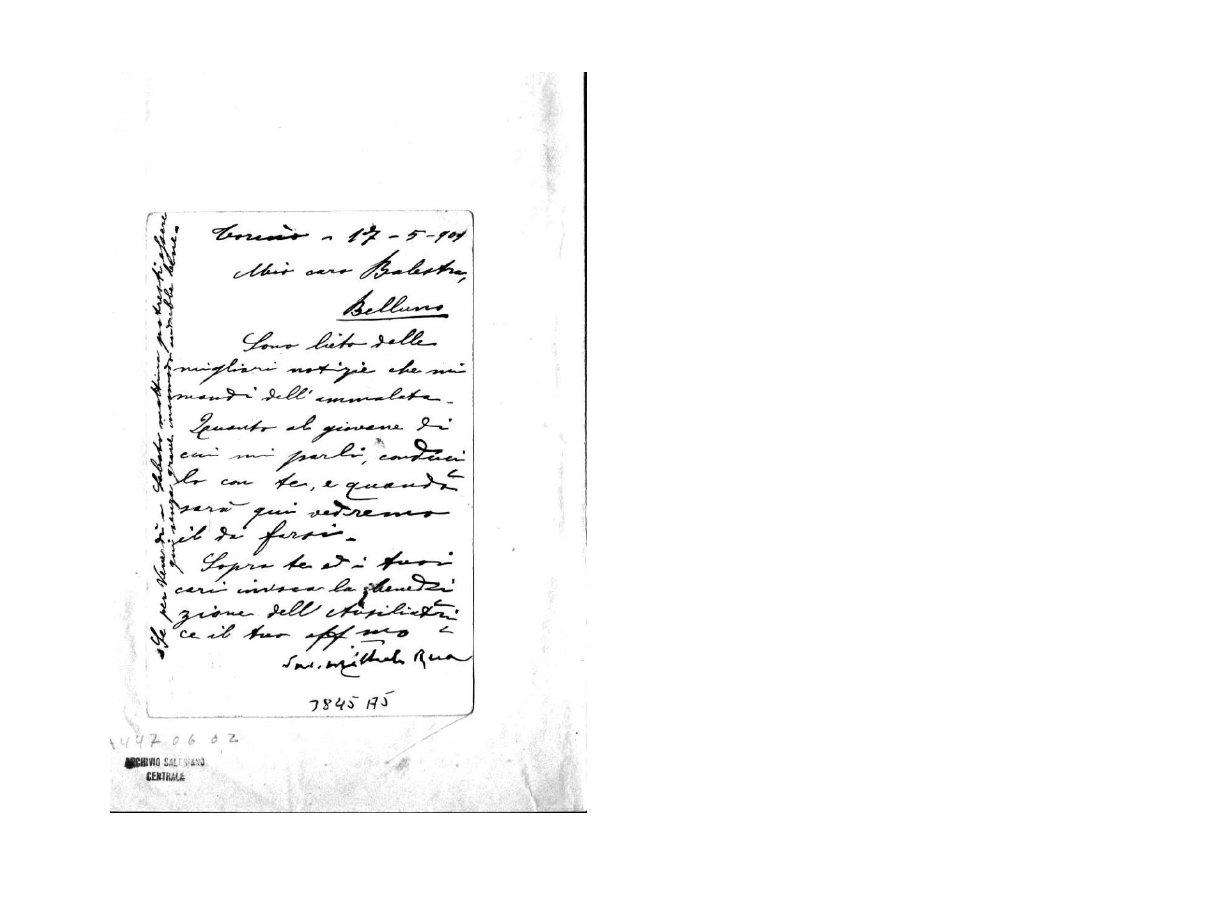 Torino - 17 - 5 - 901
Mio caro Balestra,
Belluno
Sono lieto delle
migliori notizie che mi
mandi dell'ammalata -
Quanto al giovane di
cui mi parli, conduci
lo con te, e quando
sarà qui vedremo
il da farsi -
Sopra te ed i tuoi
cari invoca la benedi
zione dell'Ausiliatri
ce il tuo aff mo
Sac. Michele Rua
Se per Venerdì o Sabato mattina potresti essere
qui senza grave incomodo andrebbe bene -
3845 A5
A447 06 02
ARCHIVIO SALESIANO
CENTRALE